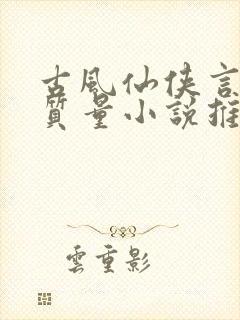 古風仙俠言
質量小說推
雲重影